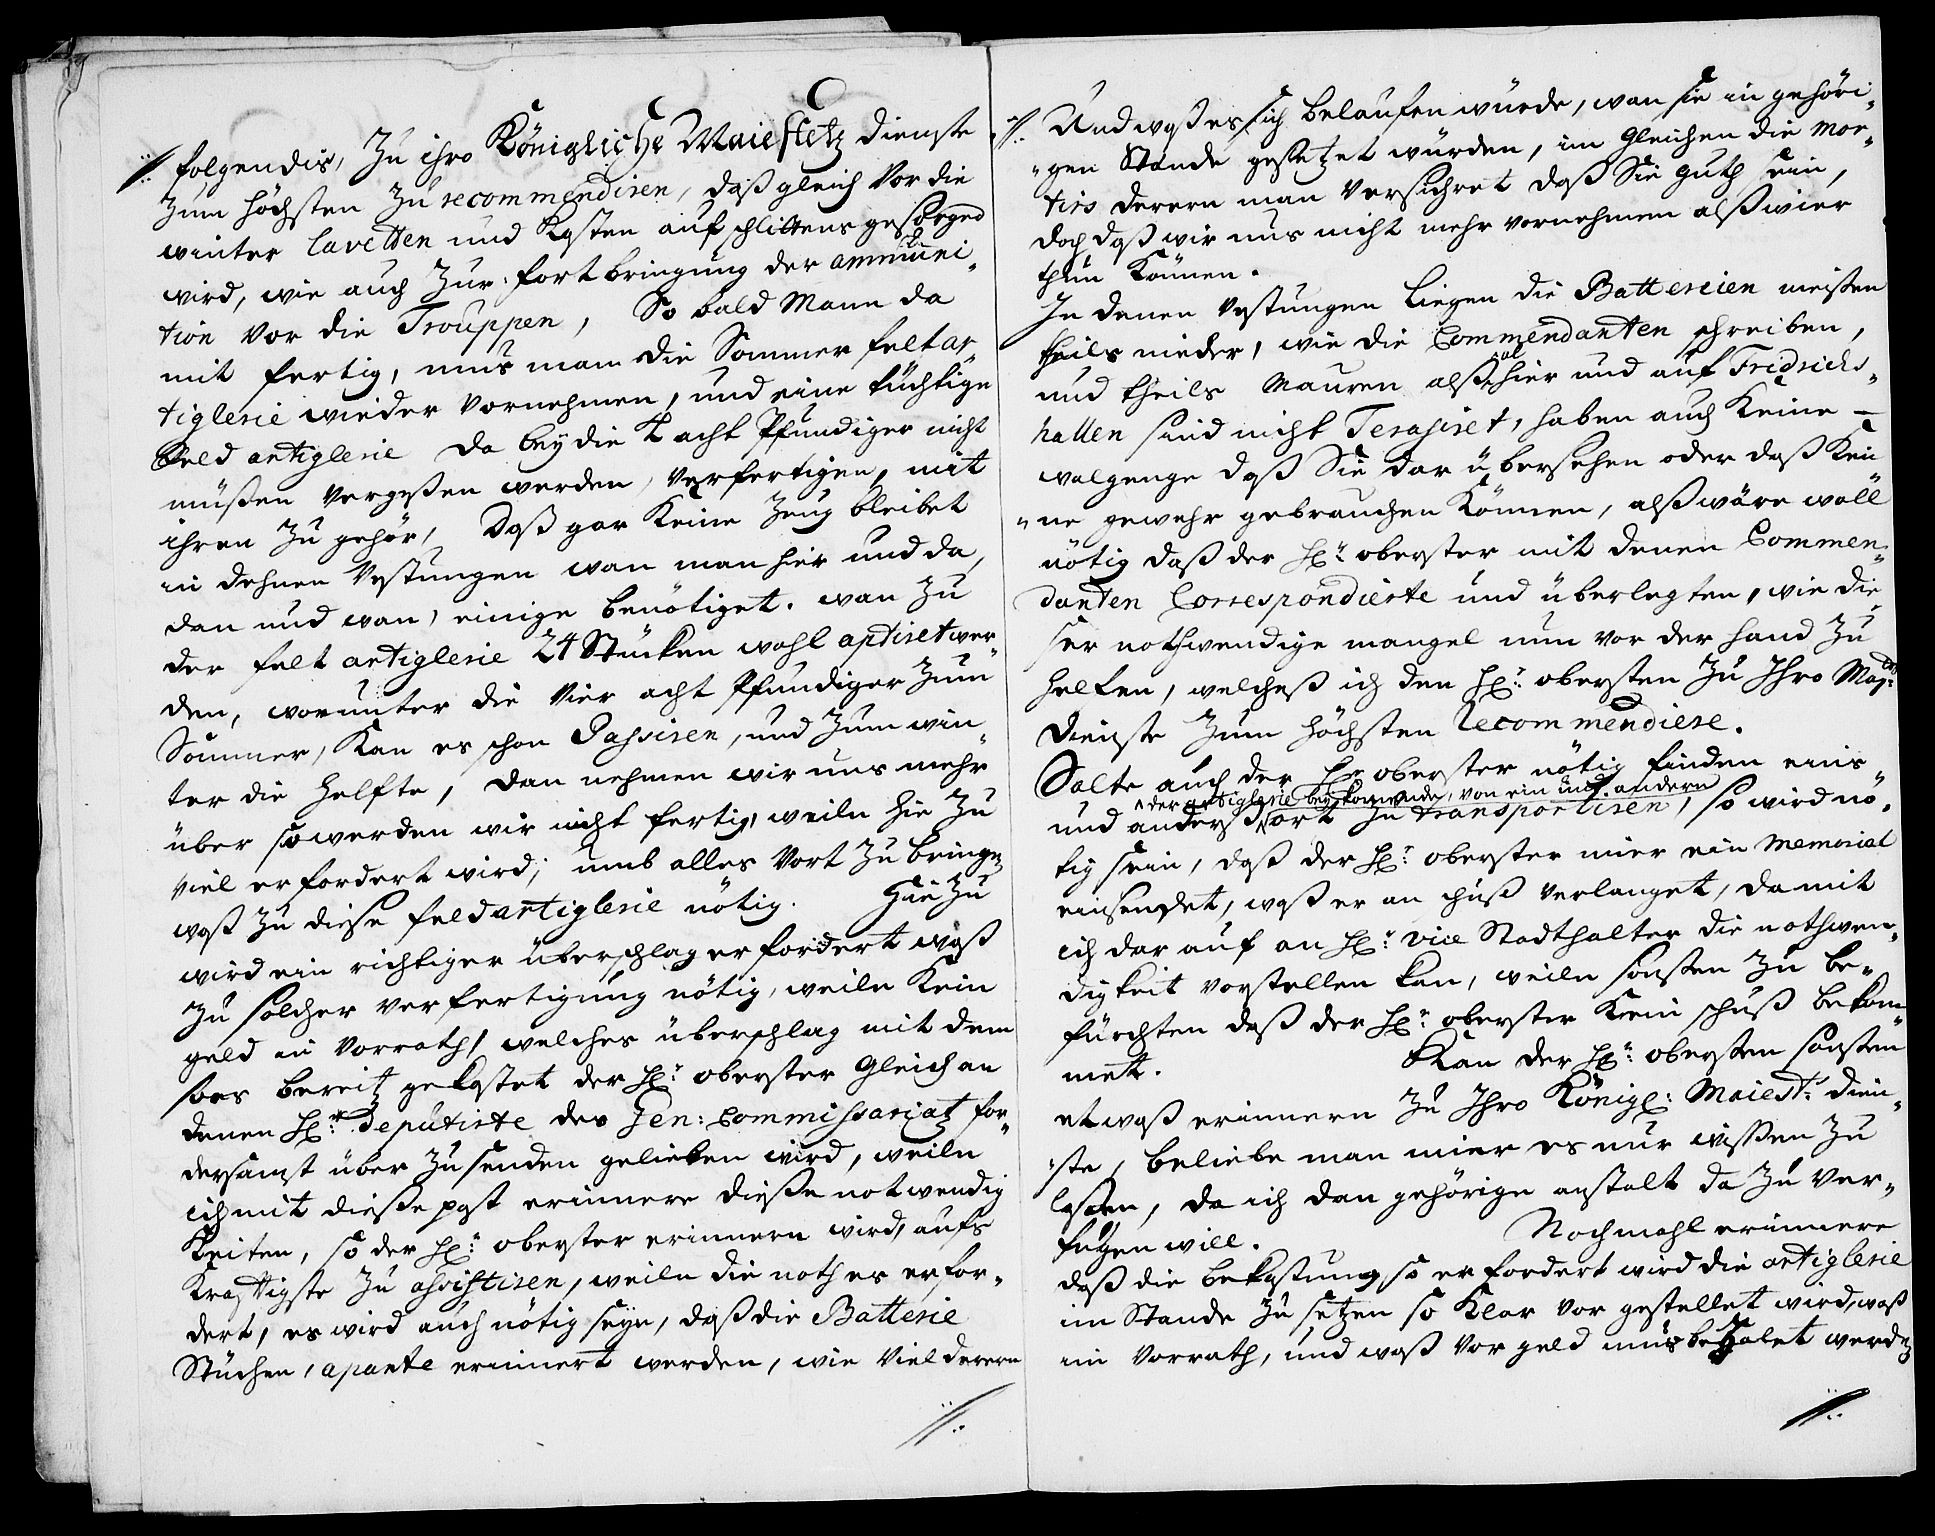 folgendis, Zu ihro Königliche Maiestetz dienste
Zum höchsten Zu recommendiren, daß gleich vor die
winter lavetten und Kasten auf schlittens gesorged
wird, wie auch Zur fortbringung der ammuni„
tion vor die Trouppen, So bald Mann da
mit fertig, mus mann die Sommer felt ar„
tiglerie wieder vornehmen, und eine tüchtige
feld artiglerie da bey die acht Pfundiger nicht
müßen vergeßen werden, verfertigen, mit
ihren Zu gehör, daß gar keine Zeug bleibet
in dehnen Vestungen wan man hier und da,
dan und wan, einige benötiget. wan Zu
der felt artiglerie 24 Stücken wohl aptiret wer„
den, worunter die vier acht Pfundiger Zum
Sommer, Kan es schon Passiren, und Zum win„
ter die helfte, dan nehmen wir uns mehr
über so werden wir nicht fertig, weiln hie Zu
viel erfordert wird; umb alles vort Zu bringen
waß Zu diese feldartiglerie nötig. Hie Zu
wird ein richtiger überschlag erfordert waß
Zu solcher verfertigung nötig, weiln Kein
geld in Vorrath, welches überschlag mit dem
soes bereitz gekostet der Hr: oberster gleich an
denen Hr: deputirte des Gen: Commissariatz for„
dersamst über Zu senden gelieben wird, weiln
ich mit dieße post erinnere dieße notwendig
Keiten, so der Hr: oberster erinnern wird, aufs
Kräftigste Zu assistiren, weiln die noth es erfor„
dert, es wird auch nötig seyn, daß die Batterie
Stücken, aparte erinnert werden, wie viel deren
//.
//. Und waß es sich belaufen würde, wan sie in gehöri„
„gen Stande gesetzet würden, im gleichen die mor„
tirs deren man versichret daß Sie guth sein,
doch daß wir uns nicht mehr vornehmen alß wier
thun Können.
In denen Vestungen liegen die Battereien meisten
theils nieder, wie die Commendanten schreiben,
und theils Mauren alß alhier und auf Fridrichs„
hallen sind nicht Terasiret, haben auch Keine
walgenge daß Sie dar übersehen oder daß Kei
„ne gewehr gebrauchen Können, alß wäre woll
nötig daß der Hr: oberster mit denen Commen„
danten Correspondierte und überlegten, wie die
ser nothwendige mangel nun vor der hand Zu
helfen, welcheß ich den Hr: obersten Zu Ihro Maj:
dienste Zum höchsten Recommendiere.
Solte auch der Hr oberster nötig finden eins
der artiglerie beykommende, von ein und andern
und anderß ort Zu transportiren, so wird nö„
tig sein, daß der Hr: oberster mier ein memorial
einsendet, waß er an schuß verlanget, damit
ich dar auf an Hr: Vice Stadthalter die nothwen„
digkeit vorstellen kan, weiln sonsten Zu be„
fürchten daß der Hr: oberster Kein schuß bekom„
met. Kan der Hr: obersten sonsten
etwaß erinnern Zu Ihro Königl: Maiest: dien„
„ste, beliebe man mier es nur wißen Zu
laßen, da ich dan gehörige anstalt da Zu ver„
fügen will. Nochmahl erinnere
daß die bekostung, so erfordert wird die artiglerie
im Stande Zu setzen so klar vor gestellet wird, waß
im Vorrath, und waß vor geld mus bezahlet werden
//.